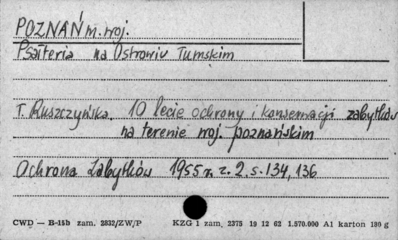 POZNAŃ m. woj.
Psałteria na Ostrowiu Tumskim
T. Ruszczyńska, 10 lecie ochrony i konserwacji zabytków
na terenie woj. poznańskim
Ochrona Zabytków 1955 r. z. 2, s. 134, 136
CWD — B-15b zam. 2832/ZW/P KZG 1 zam. 2375 19 12 62 1.570.000 A1 karton 180 g